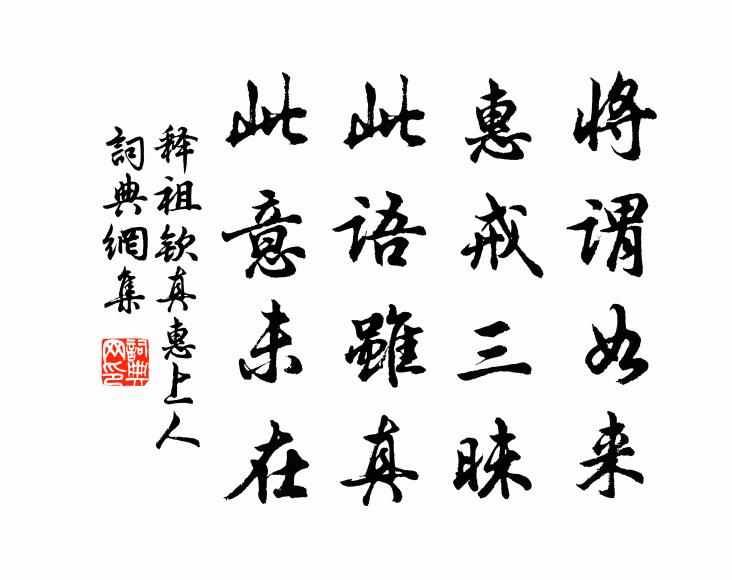 将谓如来
惠戒三昧
此语虽真
此意未在
释祖钦真惠上人
詞典網集
詞典
网印